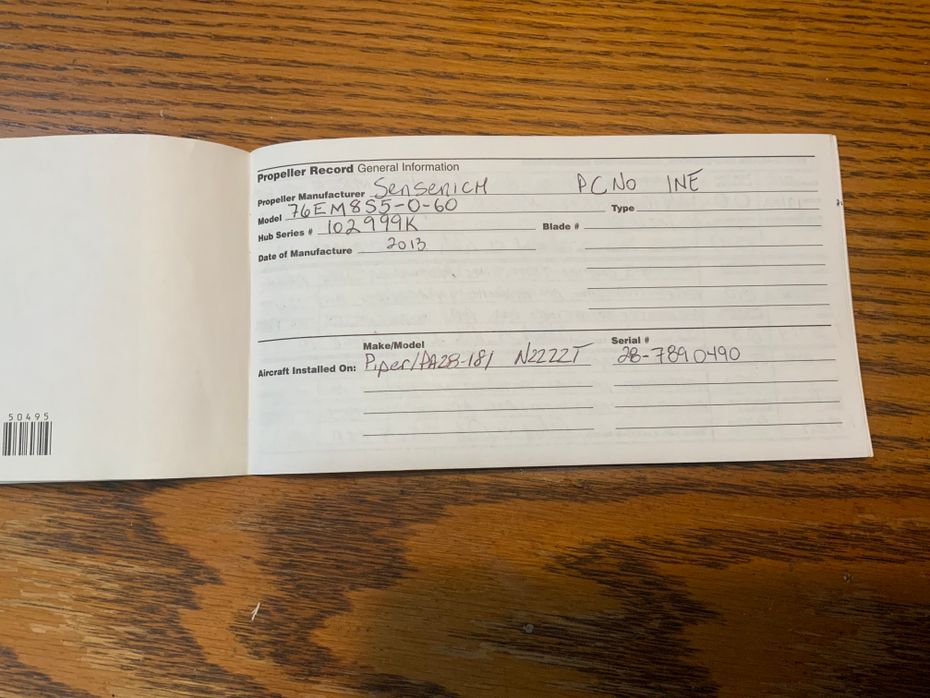 Propeller Record General Information
Propeller Manufacturer SENSENICH PCNO 1NE
Model 76EM8S5-0-60 Type
Hub Series # 102999K Blade #
Date of Manufacture 2013
Make/Model Serial #
Aircraft Installed On: Piper/PA28-181 N2222T 28-7890490
50495